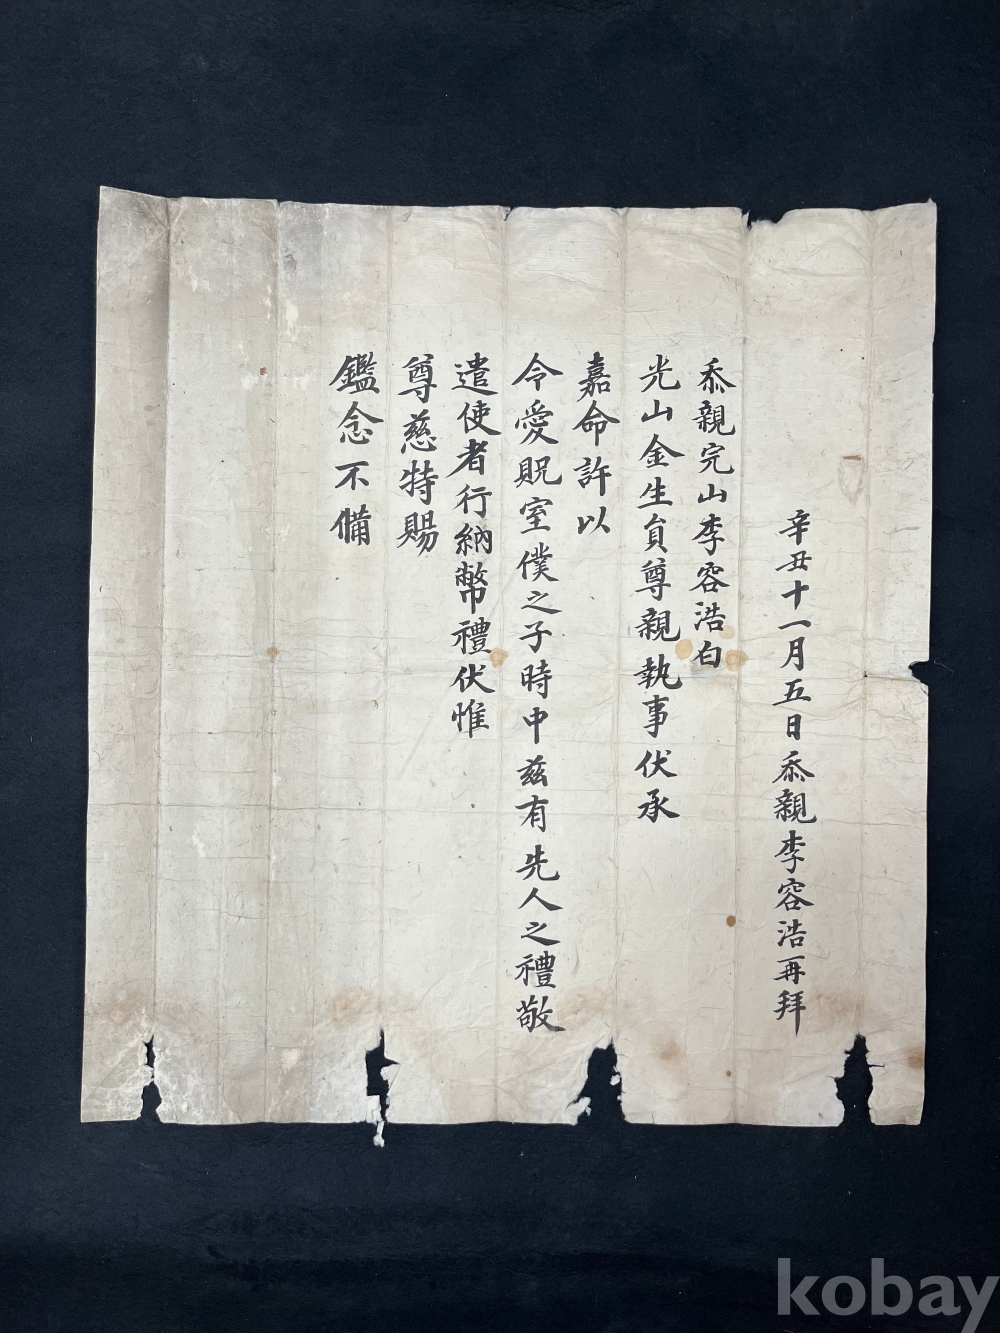 辛丑十一月五日忝親李容浩再拜
忝親完山李容浩白
光山金生員尊親執事伏承
嘉命許以
令愛貺室僕之子時中玆有先人之禮敬
遣使者行納幣禮伏惟
尊慈特賜
鑑念不備
kobay